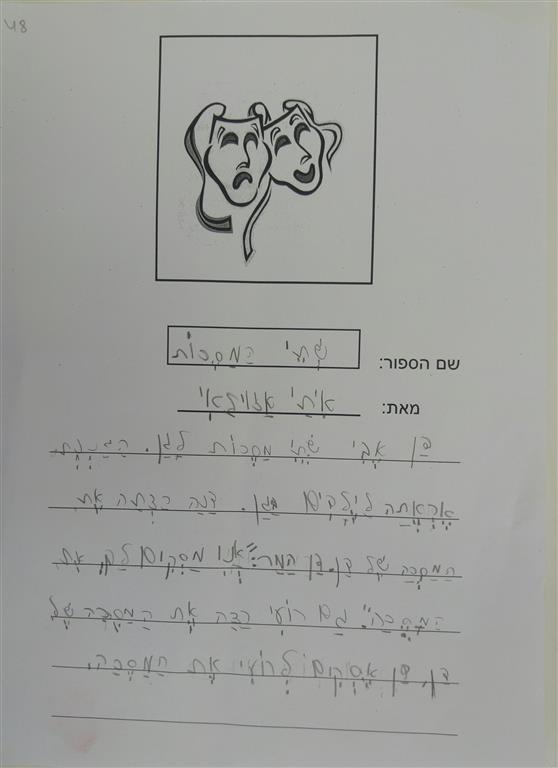 48
שם הספור: שְׁתֵּי הַמַסֵכוֹת
מאת: אִיתַי אַזוּלַאי
דָן אֲבִי שְׁתֵי מַסֵכוֹת לַגַן. הַגַנֶנֶת
אֶרְאֲתָה לַיְלָדִים מִגַן. דַנָה רָצְתָה אֶת
הַמַסֵכָה שֶׁל דָן. דָן אַמַר: "אֲנִי מַסְקִים לָתֶת אֶת
הַמַסֵכָה". גַם רוֹעִי רָצָה אֶת הַמַסֵכָה שֶׁל
דָן, דָן אִסְקִים לְרוֹעִי אֶת הַמַסֵכָה.